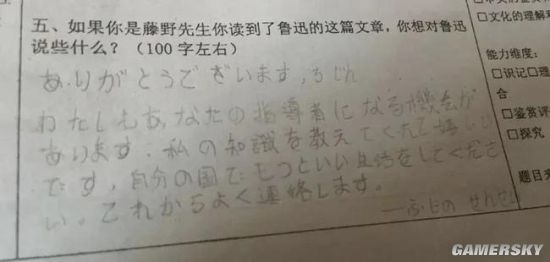 五、如果你是藤野先生你读到了鲁迅的这篇文章，你想对鲁迅
说些什么？（100字左右）
ありがとうございます，ろじん
わたしもあなたの指導者になる機会が
あります．私の知識を教えてくたて嬉しい
です，自分の国でもっといい生活をしてくださ
い．これからよく連絡します。
——ふじの せんせい
□文化的理解
能力维度：
□识记□理
合
□鉴赏评
□探究
题目来
GAMERSKY